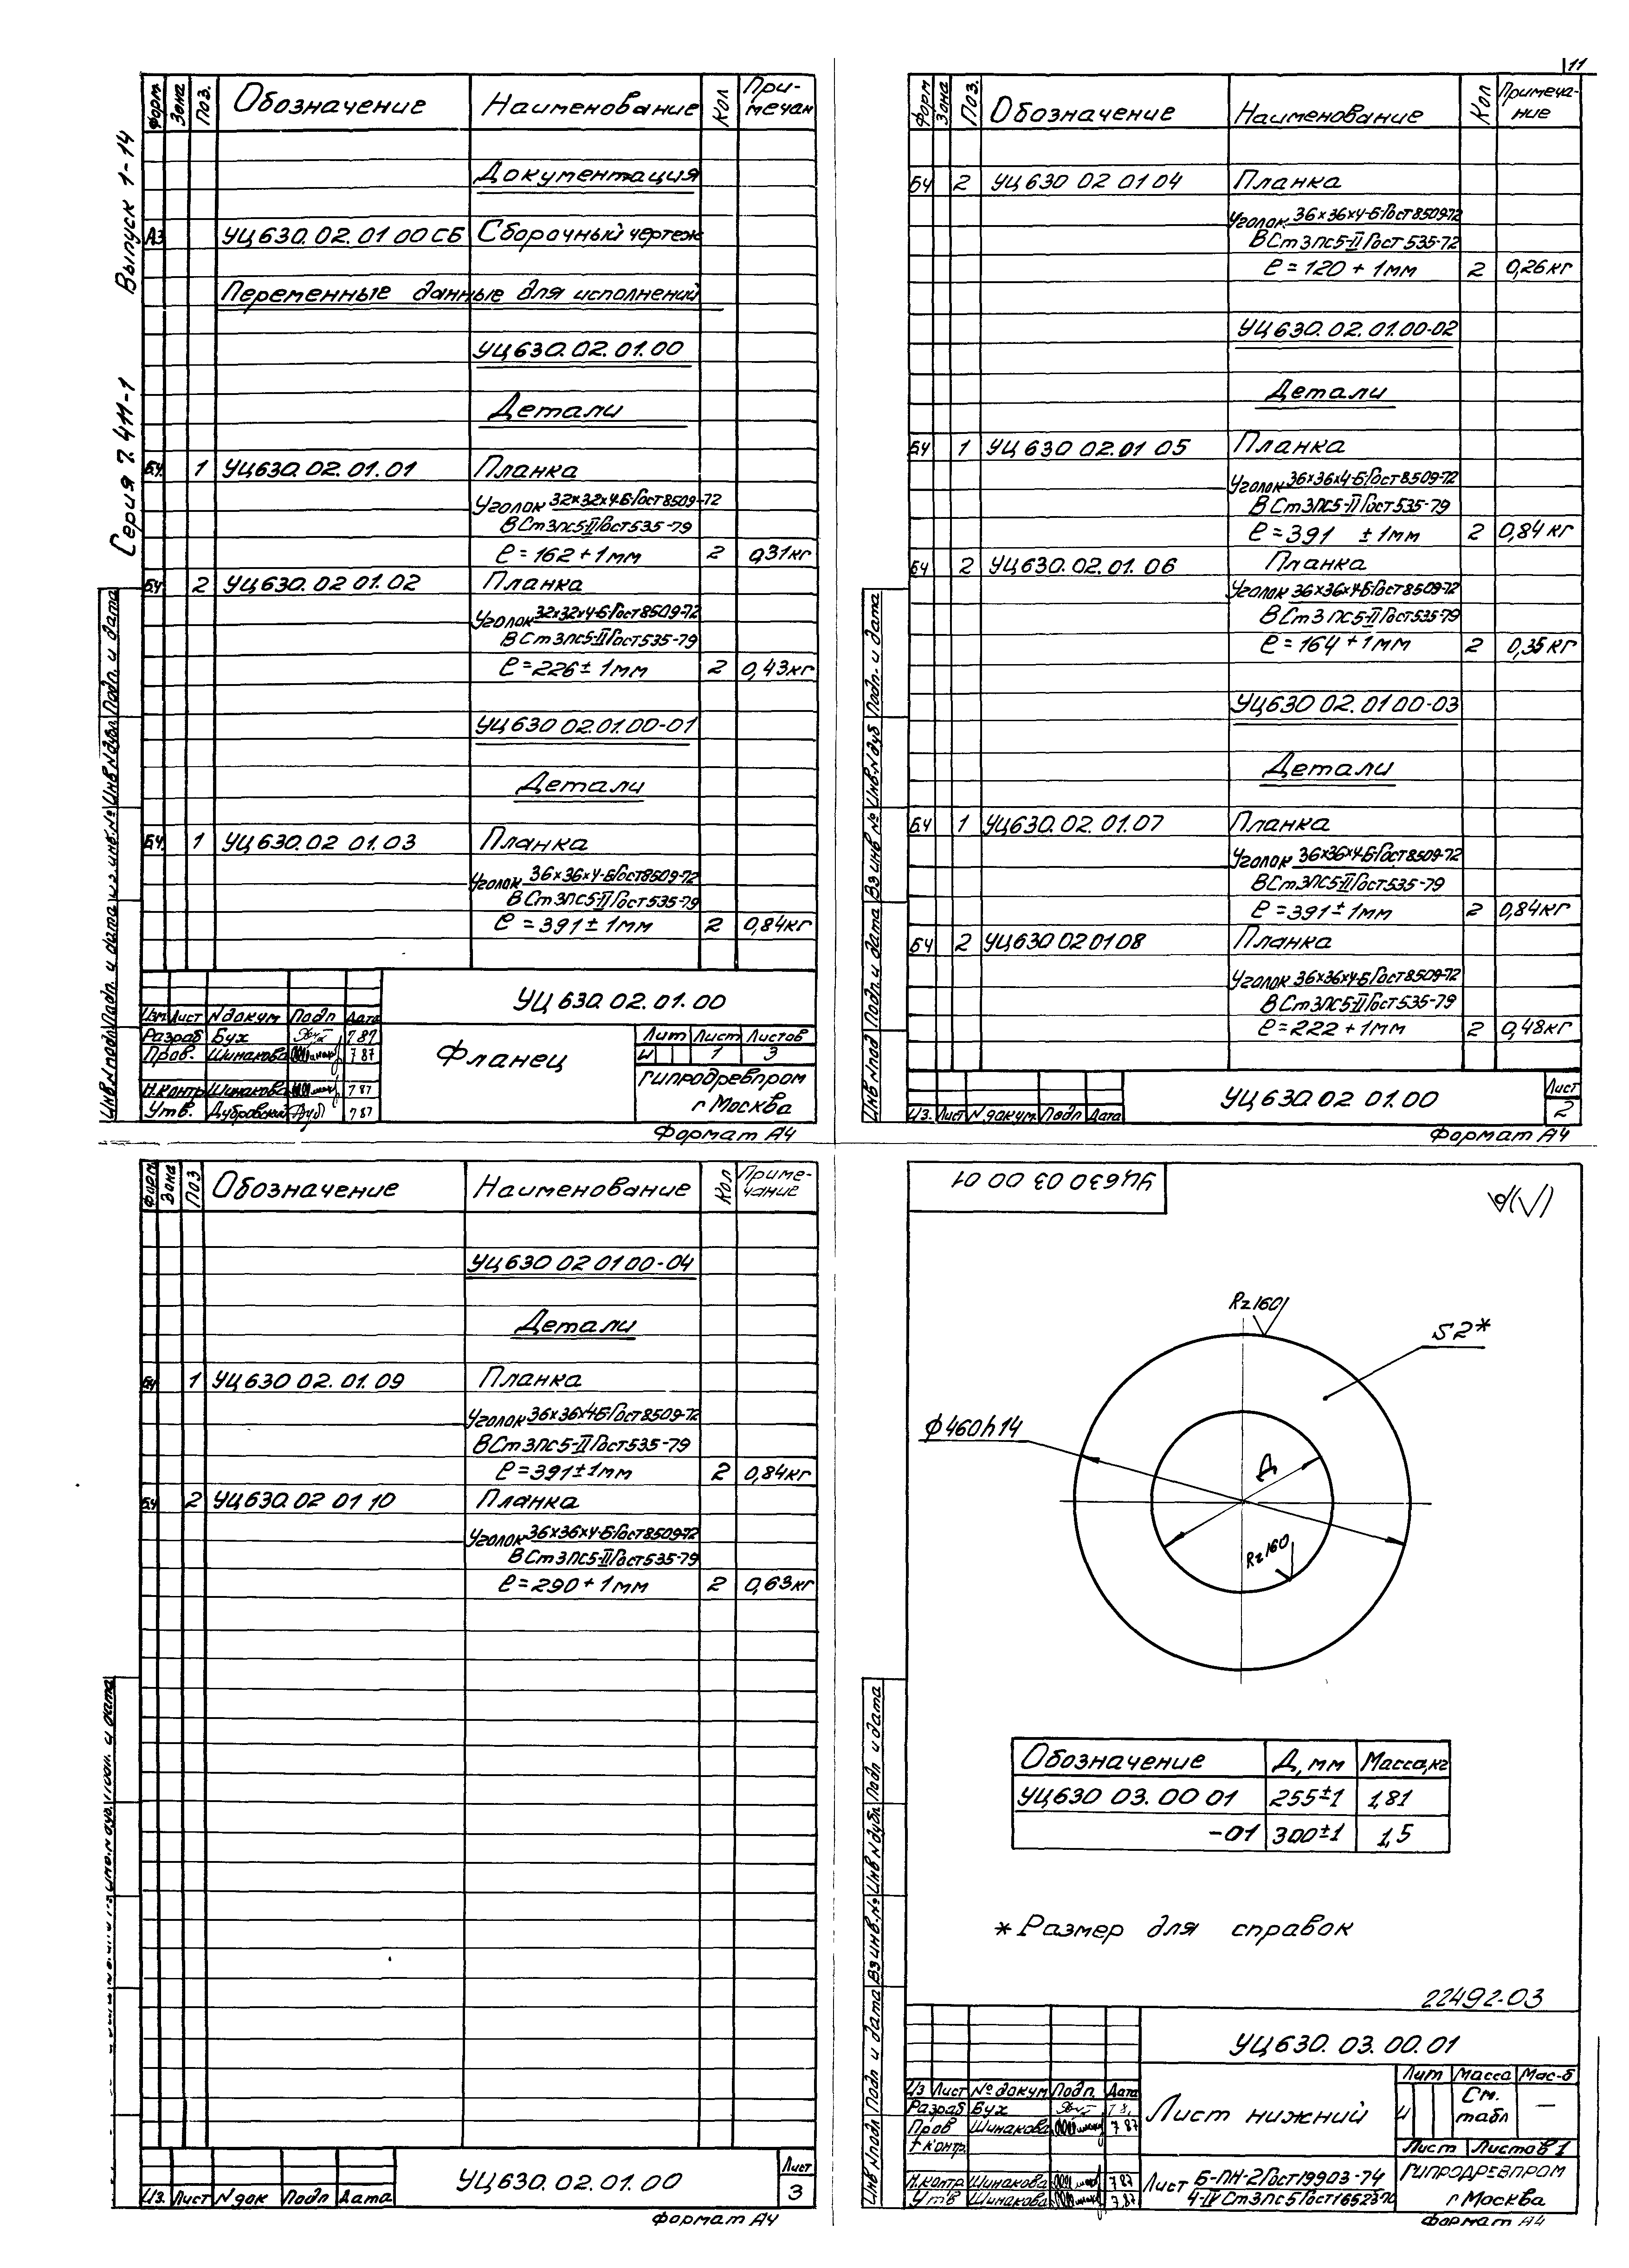 11
Серия 7.411-1 Выпуск 1-14
Форм. Зона Поз. Обозначение Наименование Кол При-мечан
Документация
А3 УЦ630.02.01 00 СБ Сборочный чертеж
Переменные данные для исполнений
УЦ630.02.01.00
Детали
БЧ. 1 УЦ630.02.01.01 Планка
Уголок 32×32×4-Б-Гост 8509-72
ВСт3пс5-II Гост 535-79
ℓ=162+1мм 2 0,31кг
БЧ 2 УЦ630.02 01.02 Планка
Уголок 32×32×4-Б-Гост 8509-72
ВСт3пс5-II Гост 535-79
ℓ=226±1мм 2 0,43кг
УЦ630 02.01.00-01
Детали
БЧ. 1 УЦ630.02 01.03 Планка
Уголок 36×36×4-Б-Гост 8509-72
ВСт3пс5-II Гост 535-79
ℓ=391±1мм 2 0,84кг
УЦ 630.02.01.00
Изм. Лист N докум Подп Дата
Разраб Бух 7 87
Пров. Шинакова 7 87
Н.контр Шинакова 7 87
Утв. Дубровский 7 87
Фланец
Лит Лист Листов
И 1 3
Гипродревпром
г Москва
Формат А4
Инв N подл Подп. и дата Вз. инв. № Инв N дубл Подп. и дата
Форм Зона Поз. Обозначение Наименование Кол Примеча-ние
БЧ 2 УЦ630 02 01 04 Планка
Уголок 36×36×4-Б-Гост 8509-72
ВСт3пс5-II Гост 535-72
ℓ=120+1мм 2 0,26кг
УЦ630.02.01.00-02
Детали
БЧ 1 УЦ630.02.01 05 Планка
Уголок 36×36×4-Б-Гост 8509-72
ВСт3пс5-II Гост 535-79
ℓ=391 ±1мм 2 0,84кг
БЧ 2 УЦ630.02.01.06 Планка
Уголок 36×36×4-Б-Гост 8509-72
ВСт3пс5-II Гост 535-79
ℓ=164+1мм 2 0,35кг
УЦ630 02.01 00-03
Детали
БЧ 1 УЦ630.02.01.07 Планка
Уголок 36×36×4-Б-Гост 8509-72
ВСт3пс5-II Гост 535-79
ℓ=391±1мм 2 0,84кг
БЧ 2 УЦ630 02 01 08 Планка
Уголок 36×36×4-Б-Гост 8509-72
ВСт3пс5-II Гост 535-79
ℓ=222+1мм 2 0,48кг
Из. Лист N докум. Подп Дата
УЦ630.02 01.00
Лист
2
Формат А4
Инв N под Подп. и дата Вз инв № Инв. N дуб Подп. и дата
Форм. Зона Поз Обозначение Наименование Кол Приме-чание
УЦ630 02 01 00-04
Детали
БЧ 1 УЦ630 02.01.09 Планка
Уголок 36×36×4-Б-Гост 8509-72
ВСт3пс5-II Гост 535-79
ℓ=391±1мм 2 0,84кг
БЧ 2 УЦ630.02 01 10 Планка
Уголок 36×36×4-Б-Гост 8509-72
ВСт3пс5-II Гост 535-79
ℓ=290+1мм 2 0,63кг
Из. Лист N док Подп Дата
УЦ630.02.01.00
Лист
3
Формат А4
УЦ630 03 00 01
Rz160
S2*
ф460h14
Д
Rz160
Обозначение Д, мм Масса, кг
УЦ630 03.00 01 255±1 1,81
-01 300±1 1,5
* Размер для справок
22492-03
УЦ630.03.00.01
Из Лист № докум Подп. Дата
Разраб Бух
Пров Шинакова 7 87
Т контр.
Н.контр Шинакова 7 87
Утв Шинакова 7.87
Лист нижний
Лит Масса Мас-б
И См. табл —
Лист Листов 1
Лист Б-ПН-2 Гост 19903-74
4-IV Ст3пс5 Гост 16523-70
Гипродревпром
г Москва
Формат А4
Инв N подл Подп и дата Вз инв. № Инв N дубл Подп и дата